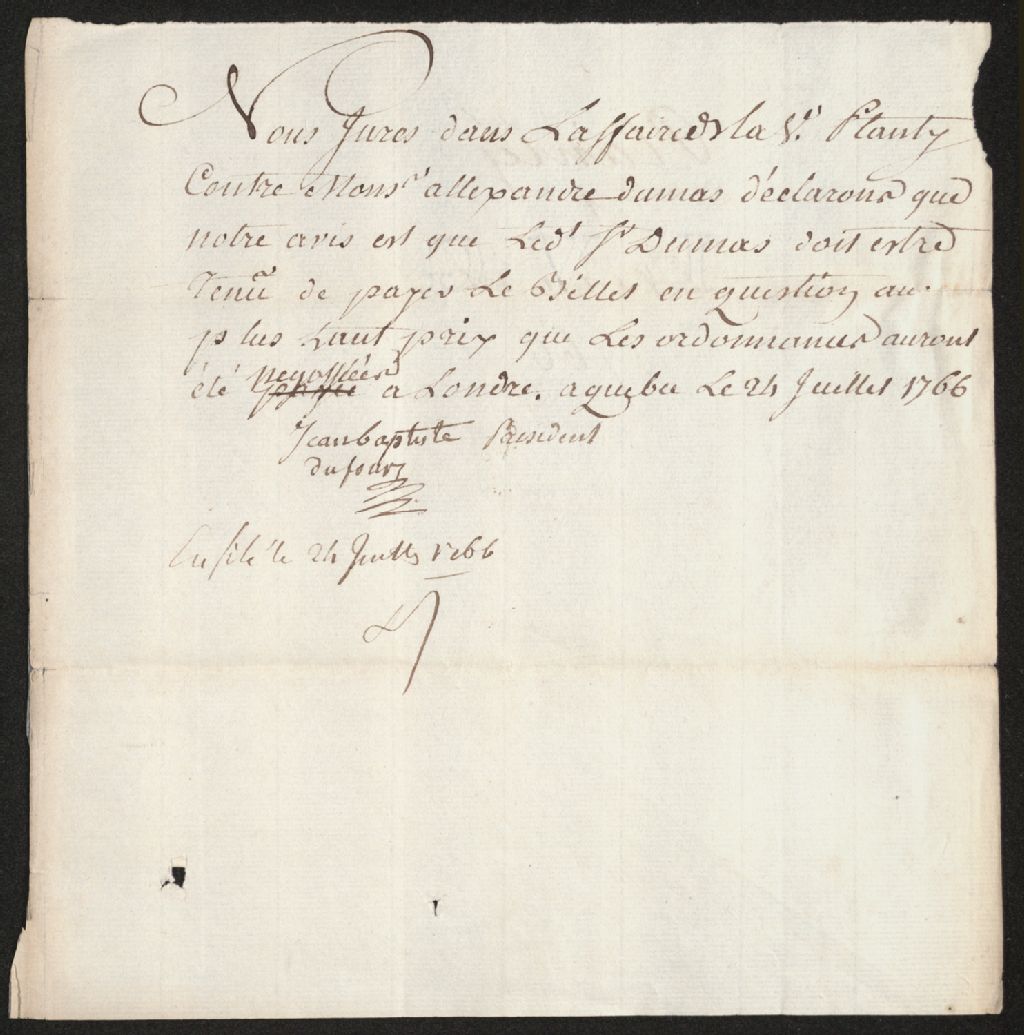 Nous Jures dans Laffaire de la Ve. Planty
Contre Monsr. allexandre dumas déclarons que
notre avis est que Ledt. Sr. Dumas doit estre
Tenu de payer Le Billet en question au
plus haut prix que Les ordonnances auront
été negossiées a Londre. a quebec Le 24 Juillet 1766
Jean baptiste President
dufour
En filé le 24 Juillt 1766